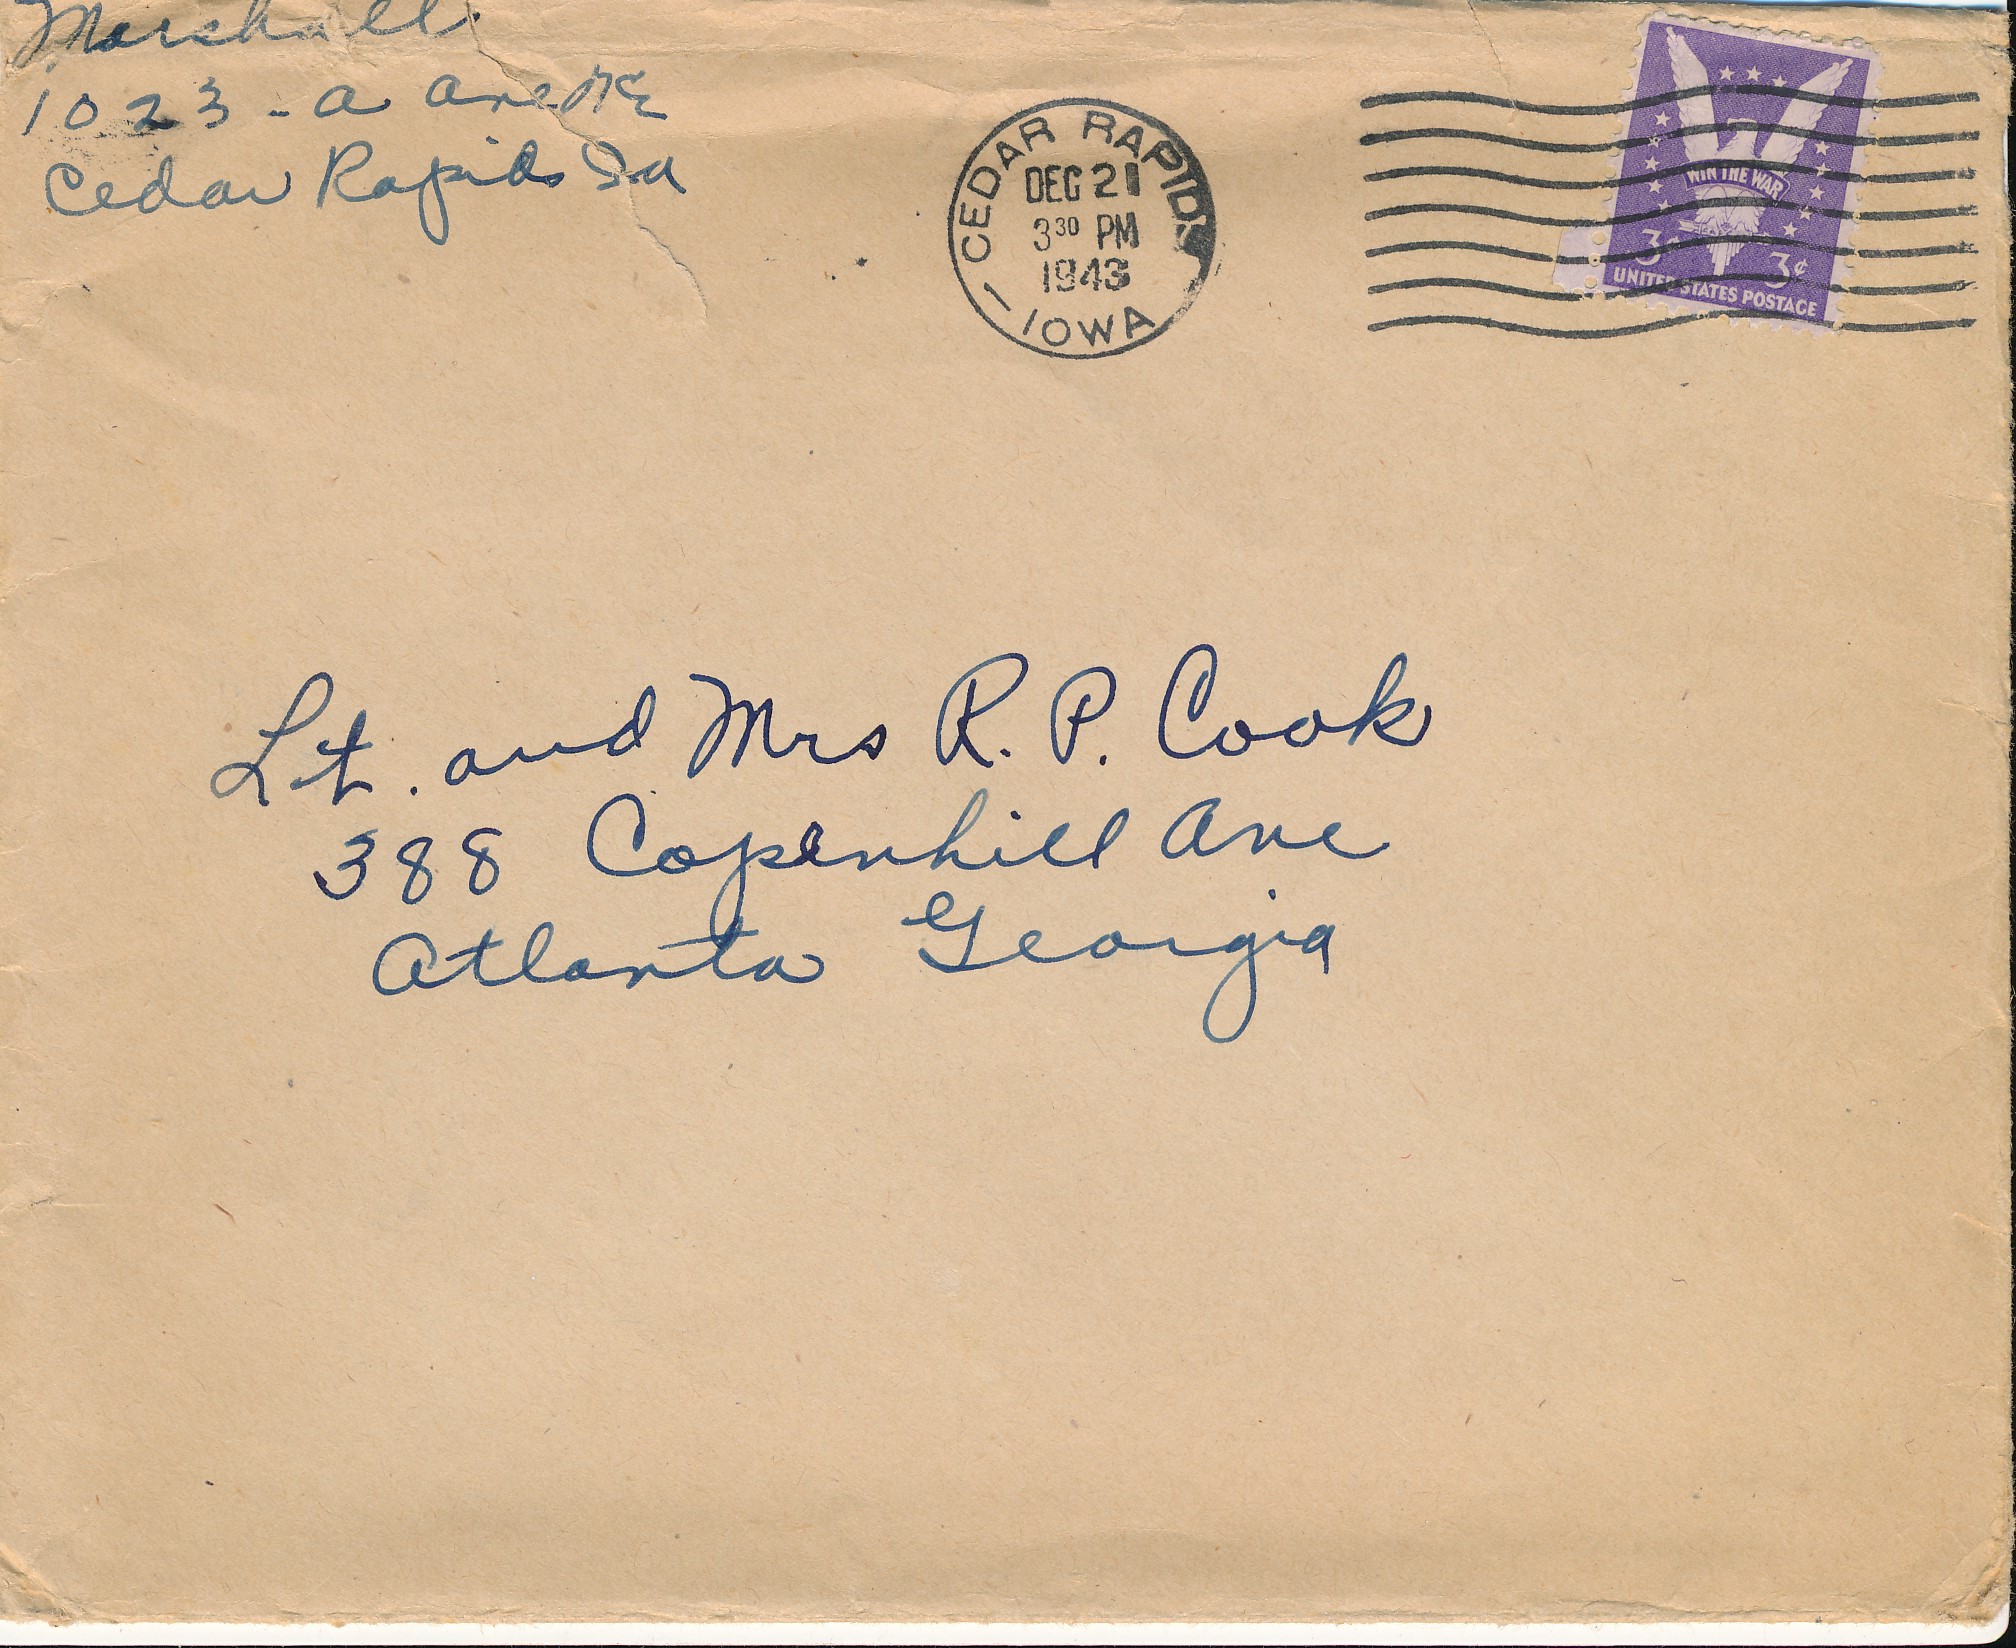 Marshall
1023 - A Ave NE
Cedar Rapids Ia
CEDAR RAPIDS
DEC 21
3 30 PM
1943
1 IOWA
WIN THE WAR
3¢ 3¢
UNITED STATES POSTAGE
Lt. and Mrs R. P. Cook
388 Copenhill Ave
Atlanta Georgia